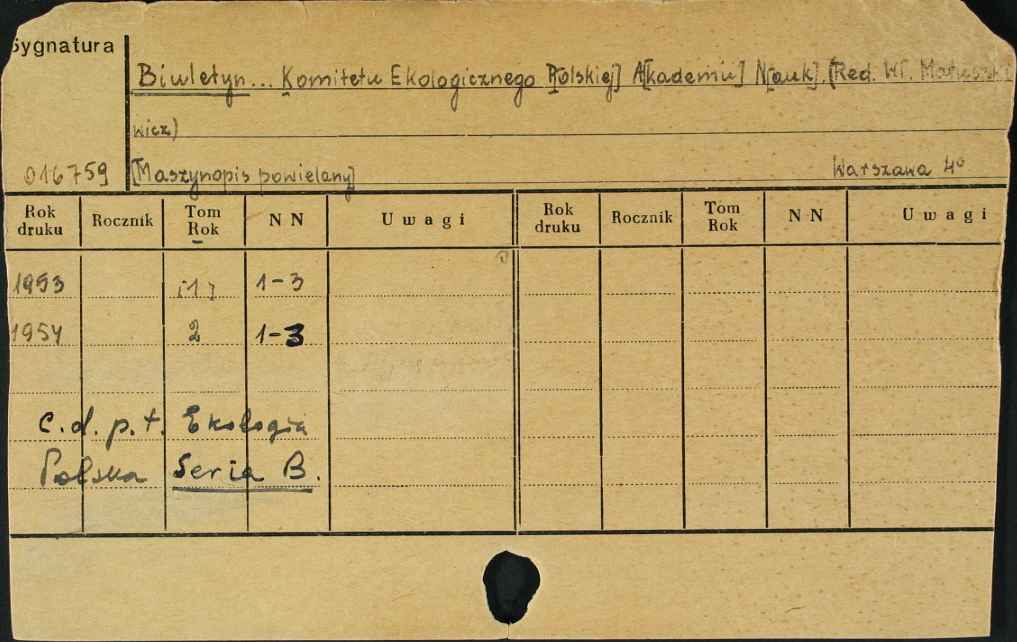 Sygnatura
Biuletyn... Komitetu Ekologicznego P[olskiej] A[kademii] N[auk]. [Red. Wł. Matuszkie
wicz]
016759 [Maszynopis powielany] Warszawa 4°
Rok druku Rocznik Tom Rok NN Uwagi Rok druku Rocznik Tom Rok NN Uwagi
1953 [1] 1-3
1954 2 1-3
c.d. p.t. Ekologia
Polska Seria B.